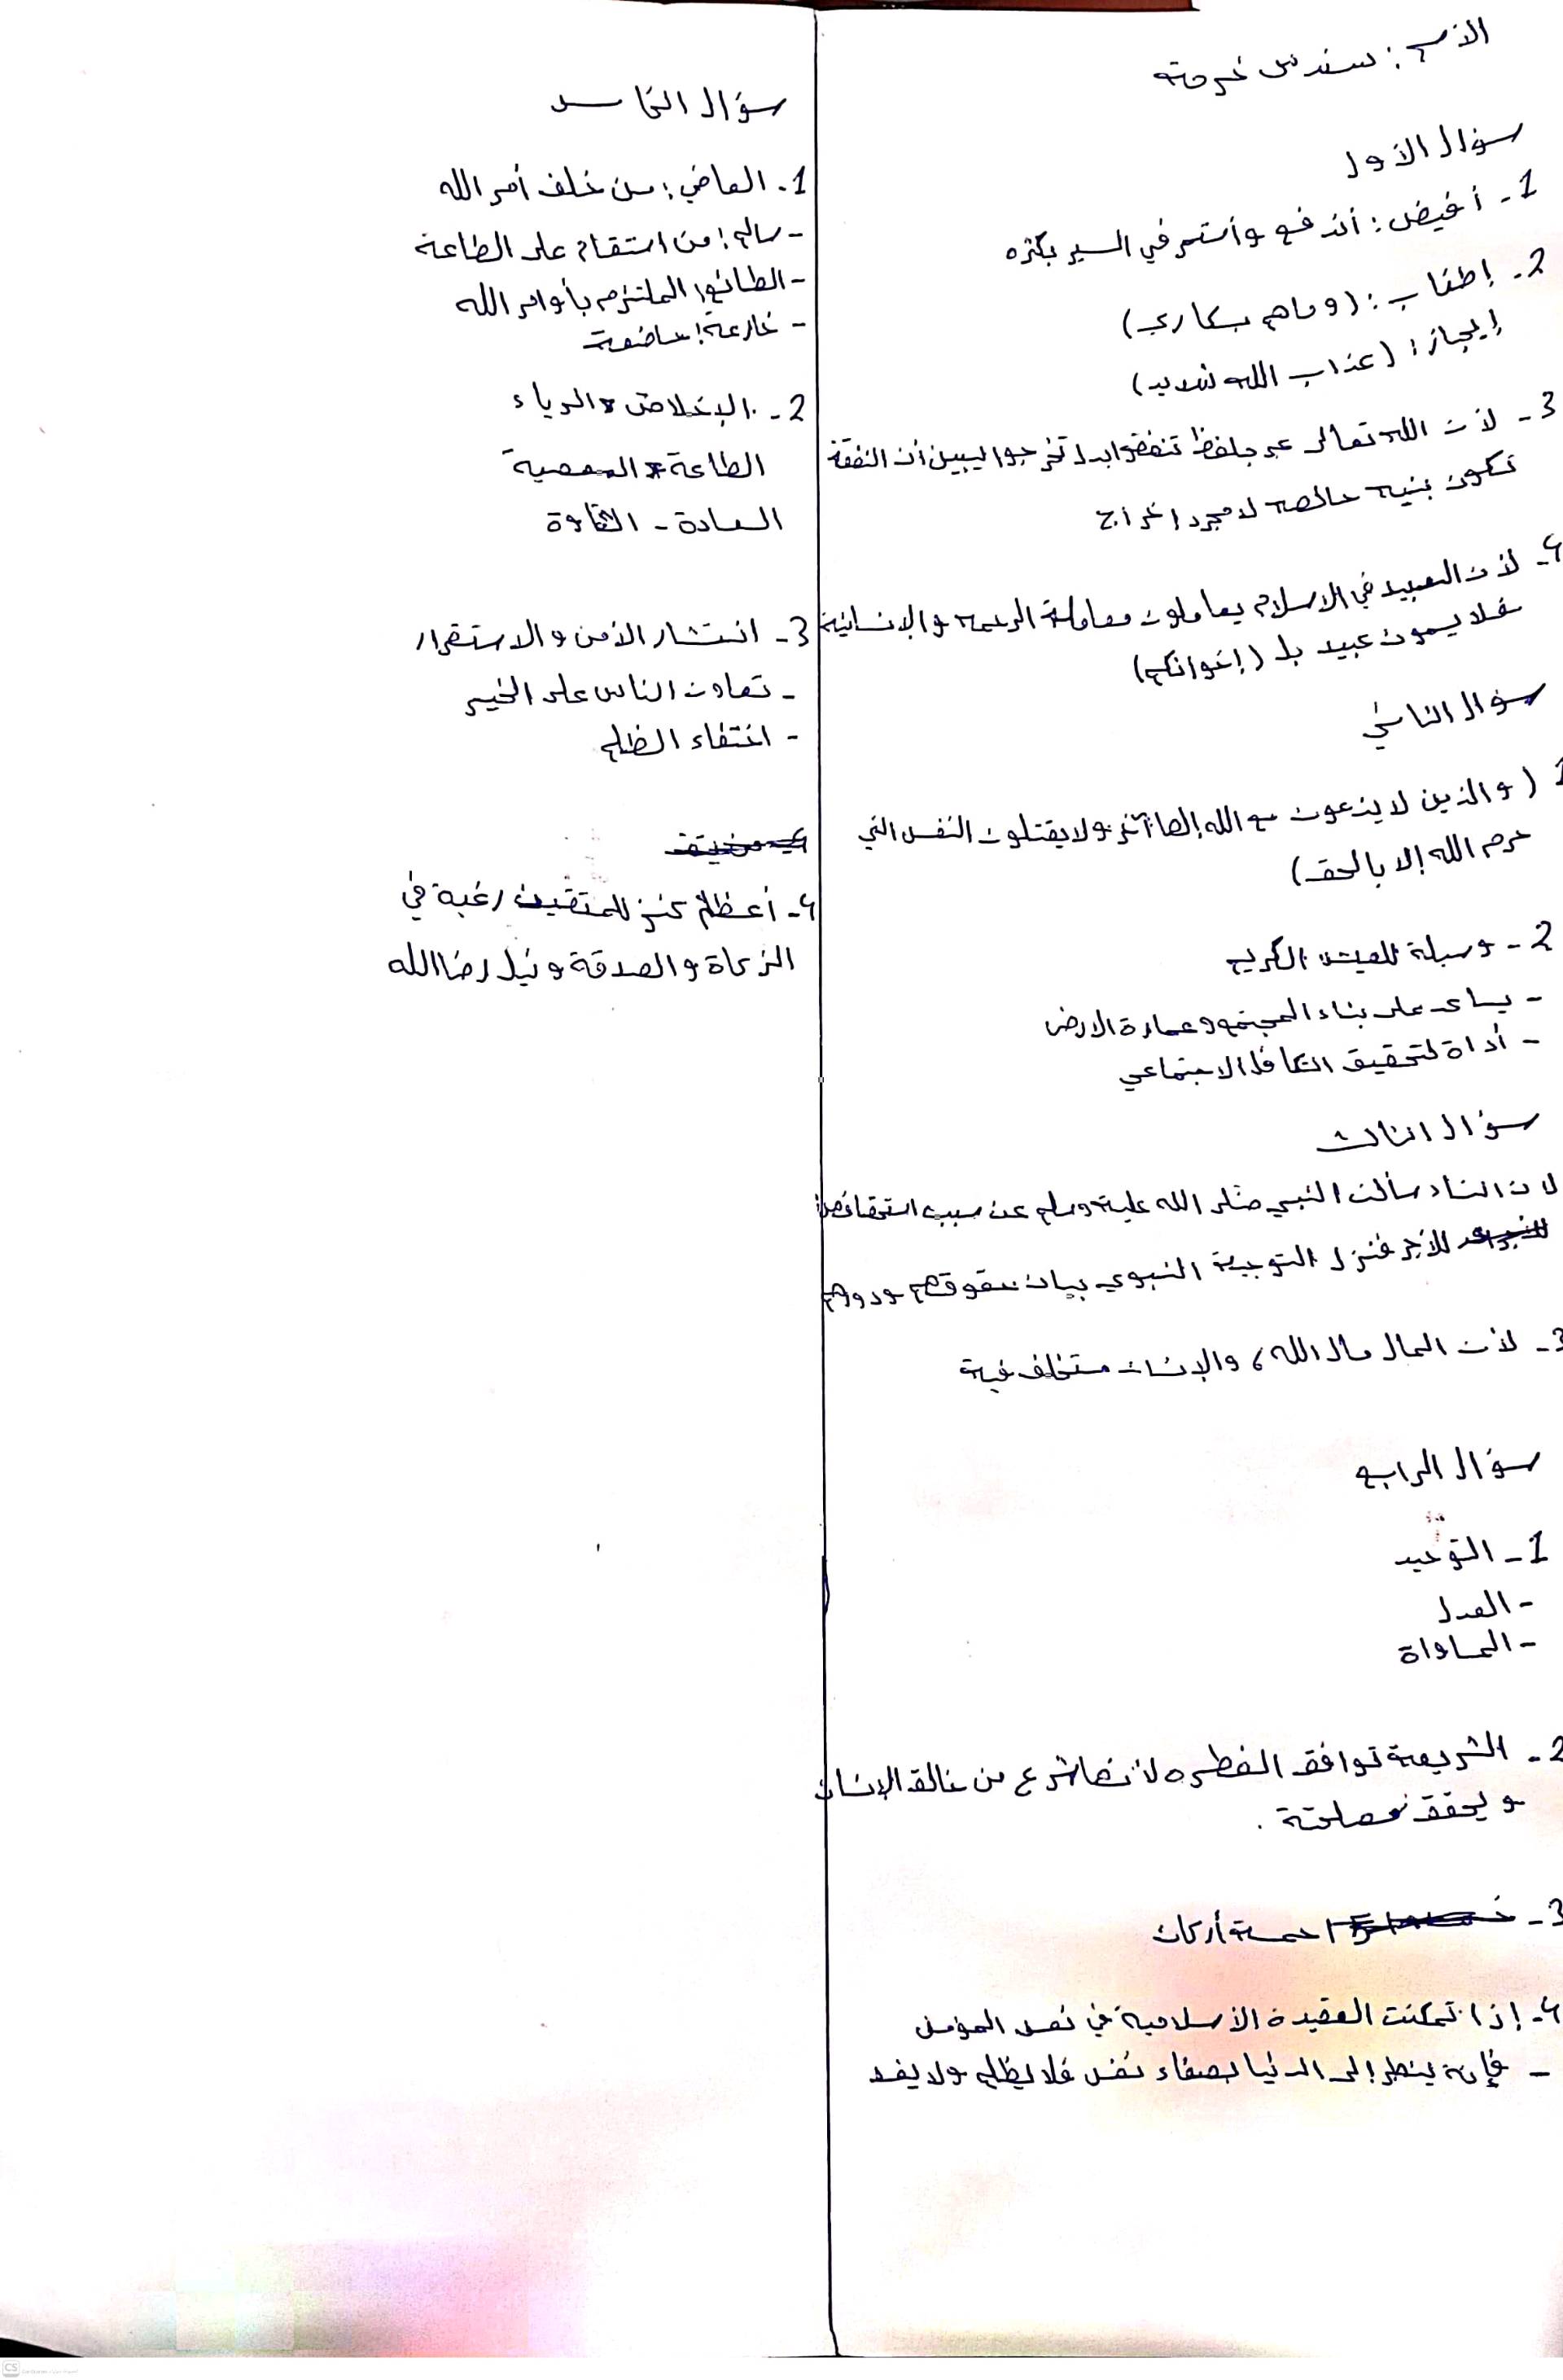 الاسم: سندس خرمة
سؤال الأول
1- أفيض: أندفع وأستمر في السير بكثره
2- إطناب: (وماهم بسكارى)
إيجاز: (عذاب الله شديد)
3- لأن الله تعالى عبر بلفظ تنفقوا بدل تخرجوا ليبين أن النفقة
تكون بنيه خالصه لا مجرد إخراج
4- لأن العبيد في الاسلام يعاملون معاملة الرحمه والإنسانية
فلا يسمون عبيد بل (إخوانكم)
سؤال الثاني
1 (والذين لا يدعون مع الله إلها آخر ولا يقتلون النفس التي
حرم الله إلا بالحق)
2- وسيلة للعيش الكريم
- يساعد على بناء المجتمع وعمارة الارض
- أداة لتحقيق التكافل الاجتماعي
سؤال الثالث
لان النساء سألت النبي صلى الله علية وسلم عن سبب استحقاقهن
للأجر فنزل التوجية النبوي بيان حقوقهم ودورهم
3- لأن المال مال الله، والإنسان مستخلف فية
سؤال الرابع
1- التوحيد
- العدل
- المساواة
2- الشريعة توافق الفطره لأنها شرع من خالق الإنسان
ويحقق مصلحتة.
3- خمسة أركان
4- إذا تمكنت العقيدة الأسلامية في نفس المؤمن
- فإنة ينظر إلى الدنيا بصفاء نفس فلا يظلم ولا يفسد
سؤال الخامس
1- العاصي: من خلف أمر الله
- سالم: من استقام على الطاعة
- الطائع: الملتزم بأوامر الله
- خارعة: خاضعة
2- الإخلاص * الرياء
الطاعة * المعصية
السعادة - الشقاوة
3- انتشار الأمن والاستقرار
- تعاون الناس على الخير
- اختفاء الظلم
4- أعظم كنز للمتقين رغبة في
الزكاة والصدقة ونيل رضا الله
CS